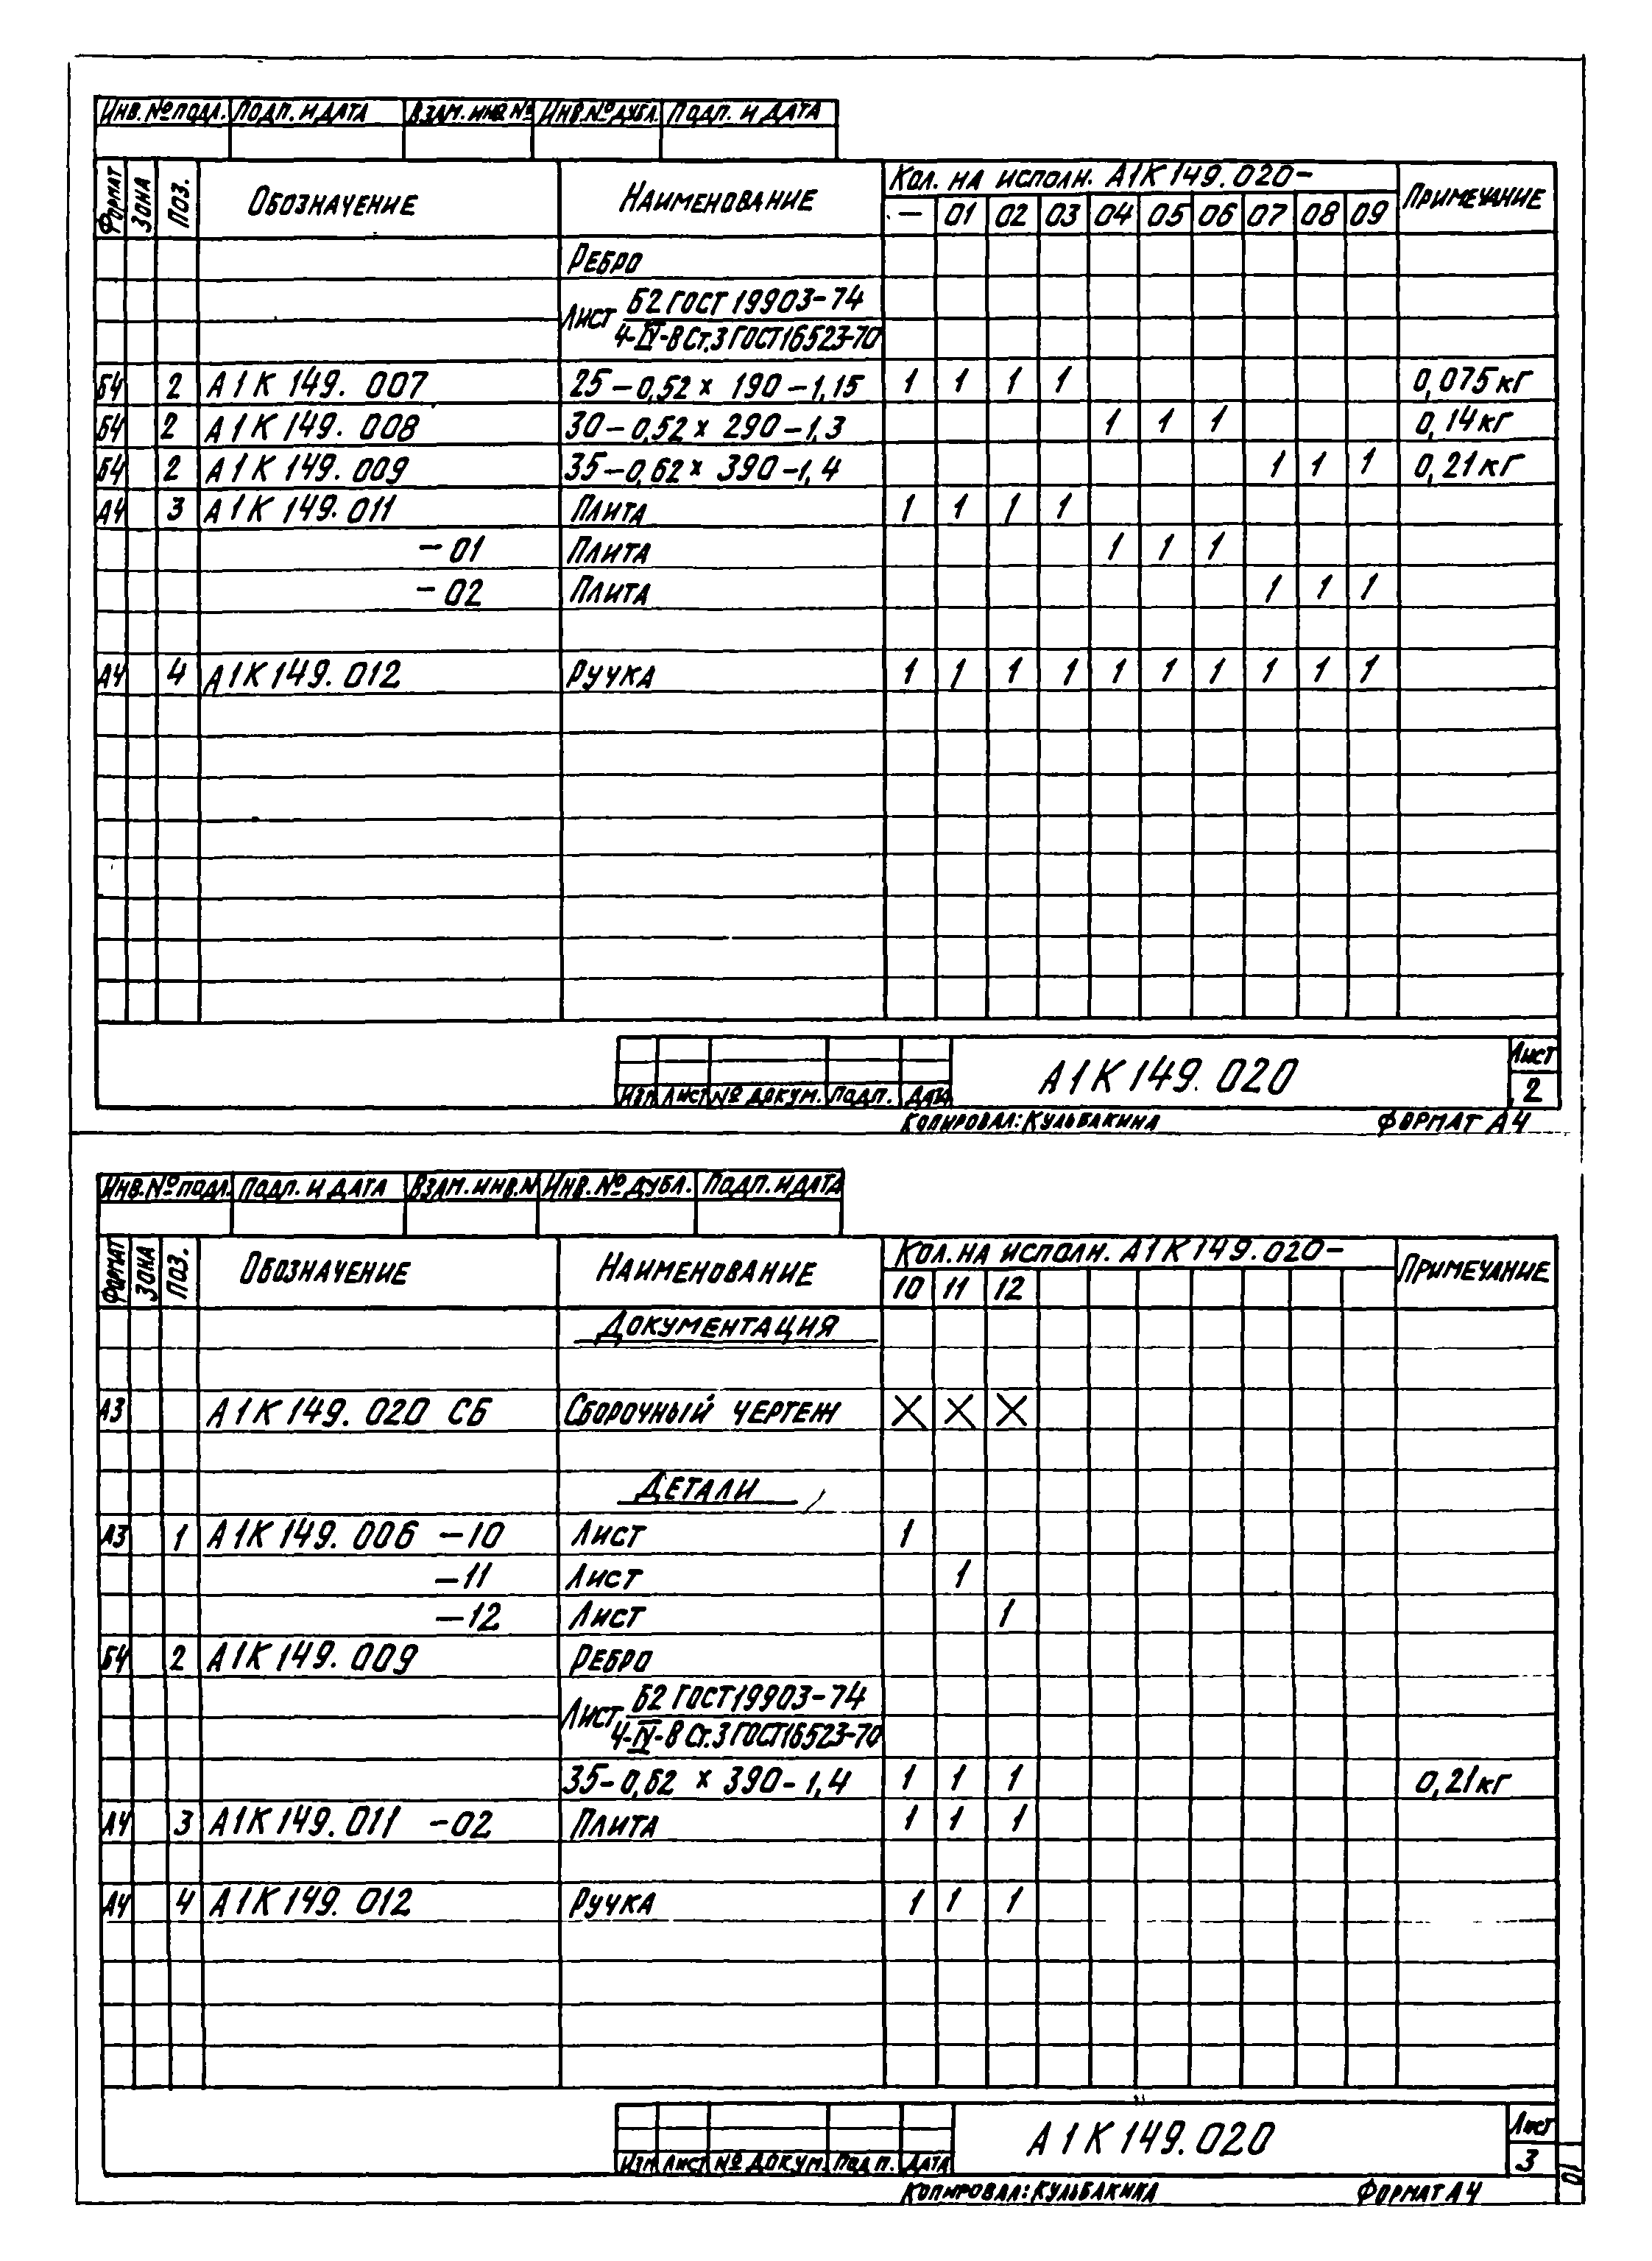 Инв. № подл. Подп. и дата Взам. инв № Инв. № дубл. Подп. и дата
Формат Зона Поз. Обозначение Наименование Кол. на исполн. А1К149.020- Примечание
– 01 02 03 04 05 06 07 08 09
Ребро
Лист Б2 ГОСТ 19903-74
4-IV-В Ст.3 ГОСТ 16523-70
Б4 2 А1К 149. 007 25-0,52 х 190-1,15 1 1 1 1 0,075 кг
Б4 2 А1К 149. 008 30-0,52 х 290-1,3 1 1 1 0,14 кг
Б4 2 А1К 149. 009 35-0,62 х 390-1,4 1 1 1 0,21 кг
А4 3 А1К 149.011 Плита 1 1 1 1
-01 Плита 1 1 1
-02 Плита 1 1 1
А4 4 А1К149.012 Ручка 1 1 1 1 1 1 1 1 1 1
А1К149.020 Лист
2
Изм Лист № докум. Подп. Дата
Копировал: Кульбакина Формат А4
Инв. № подл. Подп. и дата Взам. инв. № Инв. № дубл. Подп. и дата
Формат Зона Поз. Обозначение Наименование Кол. на исполн. А1К149.020- Примечание
10 11 12
Документация
А3 А1К149. 020 СБ Сборочный чертеж X X X
Детали
А3 1 А1К149. 006 -10 Лист 1
-11 Лист 1
-12 Лист 1
Б4 2 А1К149. 009 Ребро
Лист Б2 ГОСТ19903-74
4-IV-В Ст.3 ГОСТ16523-70
35-0,62 х 390-1,4 1 1 1 0,21 кг
А4 3 А1К149.011 -02 Плита 1 1 1
А4 4 А1К149. 012 Ручка 1 1 1
А1К149.020 Лист
3
Изм Лист № докум. Подп. Дата
10
Копировал: Кульбакина Формат А4